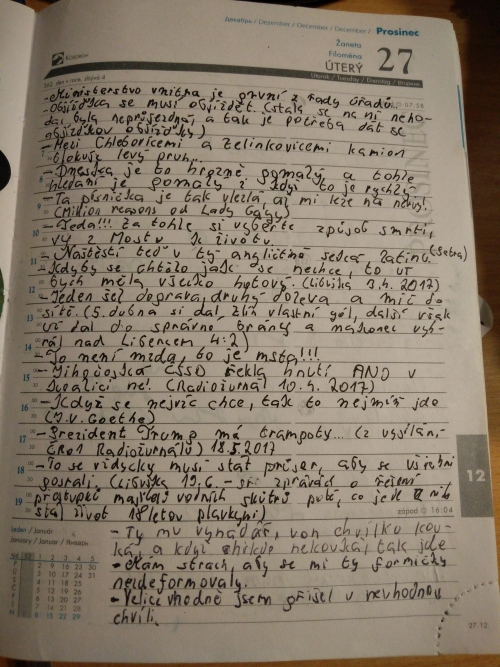 Декабрь / Dezember / December / December / Prosinec
Žaneta
Filoména
ÚTERÝ 27
Utorok / Tuesday / Dienstag / Вторник
361. den v roce, zbývá 4
07:58
-Ministerstvo vnitra je první z řady úřadů.
-Objížďka se musí objíždět. (stala se na ní neho-
da, byla neprůjezdná, a tak je potřeba dát se
objížďkou objížďky)
-Mezi Chlebovicemi a Zelinkovicemi kamion
blokuje levý pruh...
-Dneska je to hrozně pomalý a tohle
hledání je pomalý i když to je rychlý
-Ta písnička je tak vlezlá, až mi leze na nervy!
(Million reasons od Lady Gagy)
-Teda!!! Za tohle si vyberte způsob smrti,
vy z Mostu k životu.
-Naštěstí teď v tý angličtině sekar, latinu. (sestra)
-Kdyby se chtělo jak se nechce, to už
bych měla všecko hotový. (Libuška 3.4. 2017)
-Jeden šel doprava, druhý doleva a míč do
sítě. (5. dubna si dal Zlín vlastní gól, další však
už dal do správné brány a nakonec vyh-
rál nad Libercem 4:2)
-To není mzda, to je msta!!!
-Jihočeská ČSSD řekla hnutí ANO v
koalici ne! (Radiožurnál 10.4. 2017)
-Když se nejvíc chce, tak to nejmíň jde
(J.V. Goethe)
-Prezident Trump má trampoty... (z vysílání,
ČRo1 Radiožurnálu) 18.5.2017
-To se vždycky musí stát průser, aby se všichni
posrali. (Libuška 19.6. - při zprávách o řešení
přestupků majitelů vodních skútrů poté, co jede
stál život 18letou plavkyni)
západ 16:04
-Ty mu vynadáš, von chvilku kou-
ká, a když chvilku nekouká, tak jde
-Mám strach, aby se mi ty formičky
nezdeformovaly.
-Velice vhodně jsem přišel v nevhodnou
chvíli.
12
leden / Január
January / Januar / Январь
27. 12.